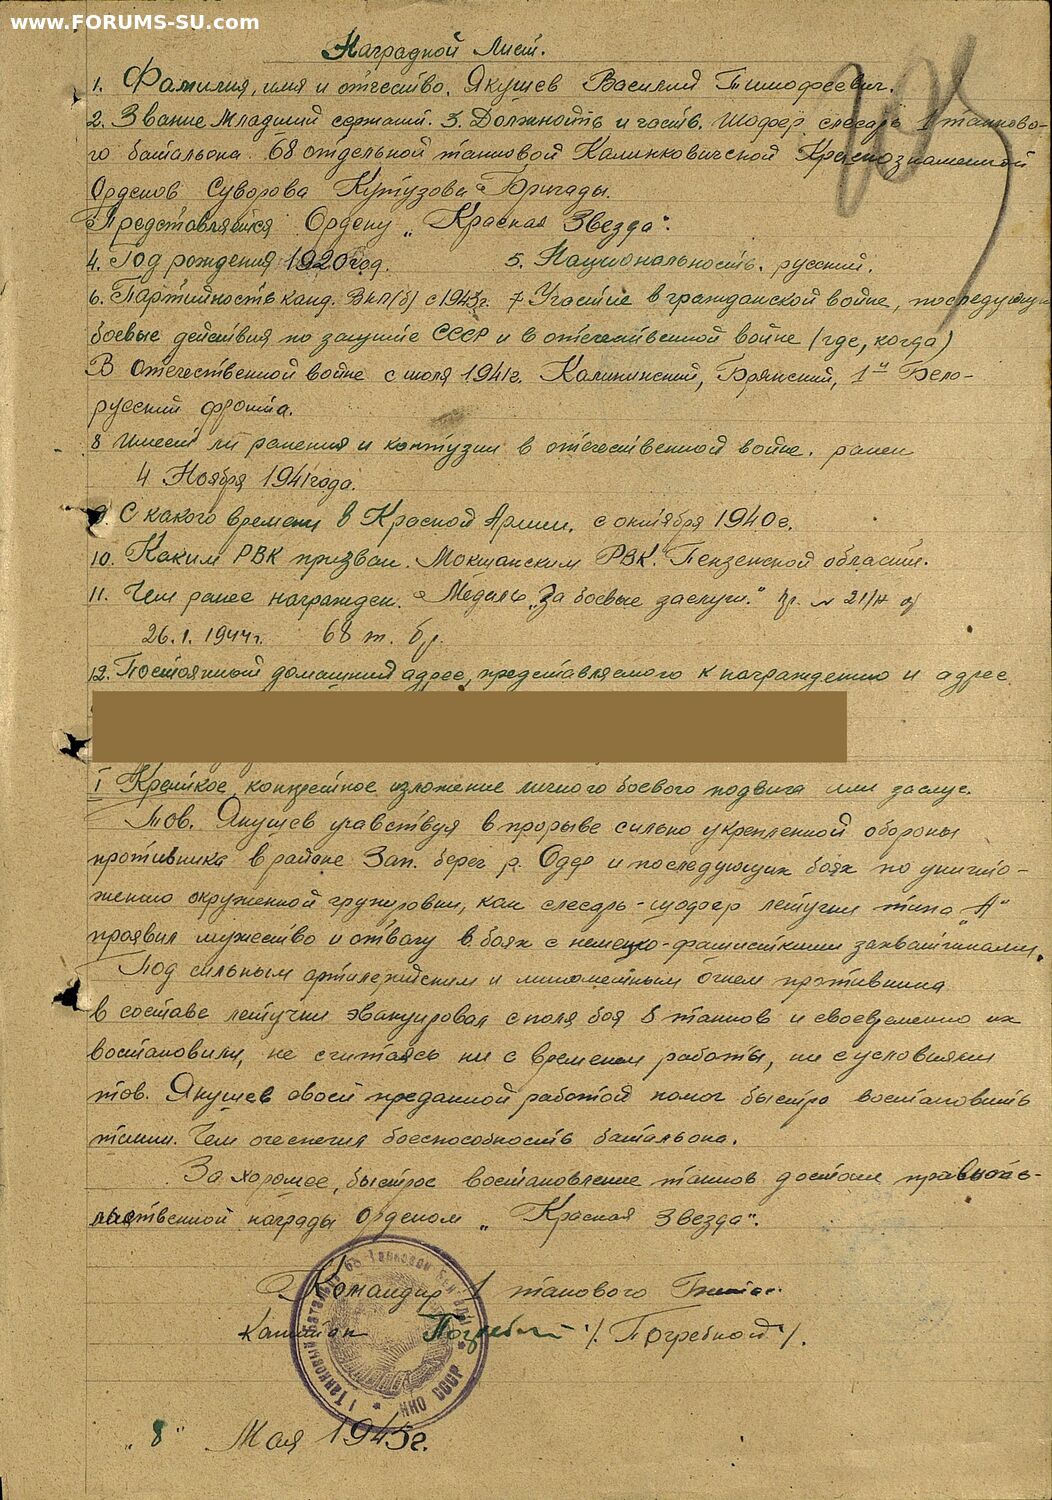 www.FORUMS-SU.com
Наградной Лист.
1. Фамилия, имя и отчество. Якушев Василий Тимофеевич.
2. Звание Младший сержант. 3. Должность и часть. Шофер слесарь 1 танково-
го батальона 68 отдельной танковой Калинковичской Краснознаменной
Орденов Суворова Кутузова Бригады.
Представляется Ордену „Красная Звезда".
4. Год рождения 1920 год. 5. Национальность. русский.
6. Партийность канд. ВКП(б) с 1943г. 7 Участие в гражданской войне, последующих
боевые действия по защите СССР и в отечественной войне (где, когда)
В Отечественной войне с июля 1941г. Калининский, Брянский, 1й Бело-
русский фронта.
8 Имеет ли ранения и контузии в отечественной войне. ранен
4 Ноября 1941 года.
9. С какого времени в Красной Армии. с октября 1940 г.
10. Каким РВК призван. Мокшанским РВК. Пензенской области.
11. Чем ранее награжден. Медаль „За боевые заслуги." пр. № 21/н от
26.1.1944г. 68 т. бр.
12. Постоянный домашний адрес, представляемого к награждению и адрес
I Краткое, конкретное изложение личного боевого подвига или заслуг.
Тов. Якушев учавствуя в прорыве сильно укрепленной обороны
противника в районе Зап. берег р. Одер и последующих боях по уничто-
жению окруженной группировки, как слесарь-шофер летучки типа „А"
проявил мужество и отвагу в боях с немецко-фашисткими захватчиками.
Под сильным артилерийским и минометным огнем противника
в составе летучки эвакуировал с поля боя 8 танков и своевременно их
востановили, не считаясь ни с временем работы, ни с условиями
тов. Якушев своей преданной работой помог быстро востановить
танки. Чем обеспечил боеспособность батальона.
За хорошее, быстрое востановление танков достоин правитель-
ственной награды Орденом „Красная Звезда".
Командир 1 танкового
Капитан Погребной /Погребной/.
1 Танковый Батальон 68 Танковой Бригады
НКО СССР
„8" Мая 1945г.